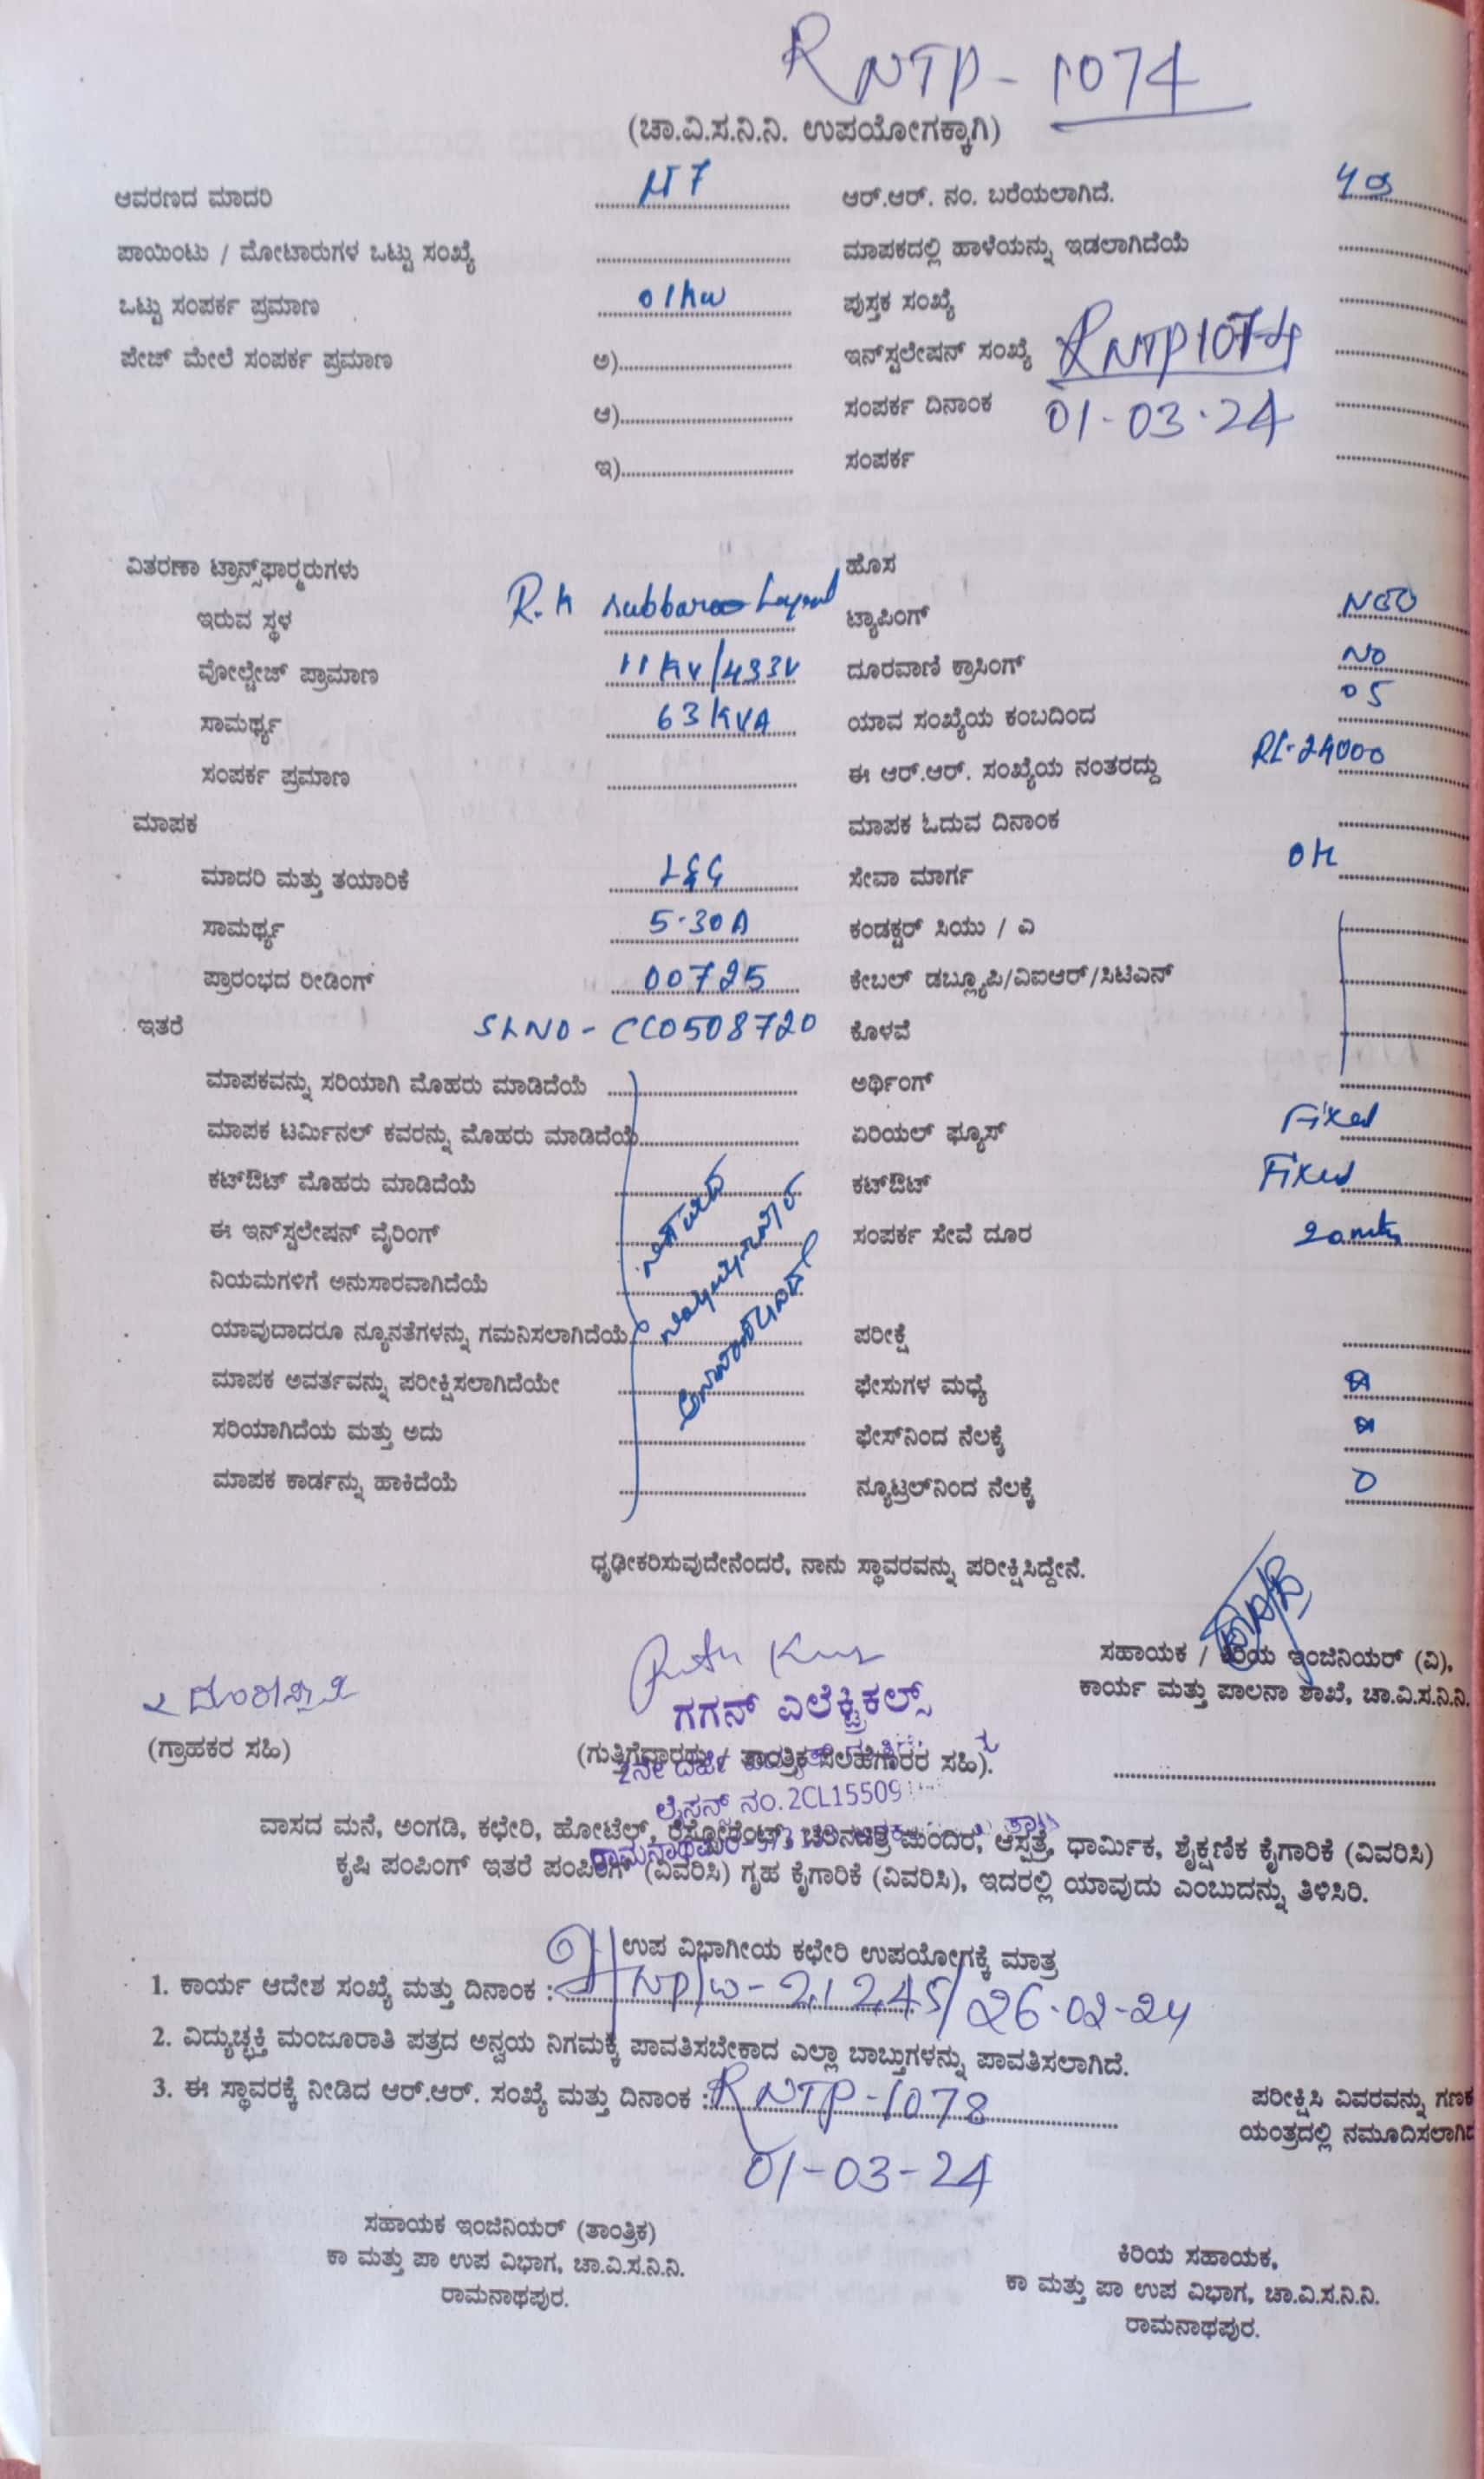 RNTP - 1074
(ಚಾ.ವಿ.ಸ.ನಿ.ನಿ. ಉಪಯೋಗಕ್ಕಾಗಿ)
ಆವರಣದ ಮಾದರಿ ಆರ್.ಆರ್. ನಂ. ಬರೆಯಲಾಗಿದೆ.
ಪಾಯಿಂಟು / ಮೋಟಾರುಗಳ ಒಟ್ಟು ಸಂಖ್ಯೆ ಮಾಪಕದಲ್ಲಿ ಹಾಳೆಯನ್ನು ಇಡಲಾಗಿದೆಯೆ
ಒಟ್ಟು ಸಂಪರ್ಕ ಪ್ರಮಾಣ 01kw ಪುಸ್ತಕ ಸಂಖ್ಯೆ
ಪೇಜ್ ಮೇಲೆ ಸಂಪರ್ಕ ಪ್ರಮಾಣ ಅ) ಇನ್‌ಸ್ಟಲೇಷನ್ ಸಂಖ್ಯೆ RNTP1074
ಆ) ಸಂಪರ್ಕ ದಿನಾಂಕ 01-03-24
ಇ) ಸಂಪರ್ಕ
ವಿತರಣಾ ಟ್ರಾನ್ಸ್‌ಫಾರ್ಮರುಗಳು ಹೊಸ
ಇರುವ ಸ್ಥಳ R.K Subbarao Layout ಟ್ಯಾಪಿಂಗ್
ವೋಲ್ಟೇಜ್ ಪ್ರಾಮಾಣ 11KV/433V ದೂರವಾಣಿ ಕ್ರಾಸಿಂಗ್ NO
ಸಾಮರ್ಥ್ಯ 63KVA ಯಾವ ಸಂಖ್ಯೆಯ ಕಂಬದಿಂದ 05
ಸಂಪರ್ಕ ಪ್ರಮಾಣ ಈ ಆರ್.ಆರ್. ಸಂಖ್ಯೆಯ ನಂತರದ್ದು RL-24000
ಮಾಪಕ ಮಾಪಕ ಓದುವ ದಿನಾಂಕ
ಮಾದರಿ ಮತ್ತು ತಯಾರಿಕೆ L&G ಸೇವಾ ಮಾರ್ಗ OH
ಸಾಮರ್ಥ್ಯ 5-30A ಕಂಡಕ್ಟರ್ ಸಿಯು / ಎ
ಪ್ರಾರಂಭದ ರೀಡಿಂಗ್ 00725 ಕೇಬಲ್ ಡಬ್ಲ್ಯೂಪಿ/ವಿಐಆರ್/ಸಿಟಿಎನ್
ಇತರೆ SLNO - CC0508720 ಕೊಳವೆ
ಮಾಪಕವನ್ನು ಸರಿಯಾಗಿ ಮೊಹರು ಮಾಡಿದೆಯೆ ಅರ್ಥಿಂಗ್
ಮಾಪಕ ಟರ್ಮಿನಲ್ ಕವರನ್ನು ಮೊಹರು ಮಾಡಿದೆಯೆ ಏರಿಯಲ್ ಫ್ಯೂಸ್ Fixed
ಕಟ್‌ಔಟ್ ಮೊಹರು ಮಾಡಿದೆಯೆ ಕಟ್‌ಔಟ್ Fixed
ಈ ಇನ್‌ಸ್ಟಲೇಷನ್ ವೈರಿಂಗ್ ಸಂಪರ್ಕ ಸೇವೆ ದೂರ 20mtr
ನಿಯಮಗಳಿಗೆ ಅನುಸಾರವಾಗಿದೆಯೆ
ಯಾವುದಾದರೂ ನ್ಯೂನತೆಗಳನ್ನು ಗಮನಿಸಲಾಗಿದೆಯೆ ಪರೀಕ್ಷೆ
ಮಾಪಕ ಅವರ್ತವನ್ನು ಪರೀಕ್ಷಿಸಲಾಗಿದೆಯೇ ಫೇಸುಗಳ ಮಧ್ಯೆ
ಸರಿಯಾಗಿದೆಯ ಮತ್ತು ಅದು ಫೇಸ್‌ನಿಂದ ನೆಲಕ್ಕೆ
ಮಾಪಕ ಕಾರ್ಡನ್ನು ಹಾಕಿದೆಯೆ ನ್ಯೂಟ್ರಲ್‌ನಿಂದ ನೆಲಕ್ಕೆ 0
ಧೃಢೀಕರಿಸುವುದೇನೆಂದರೆ, ನಾನು ಸ್ಥಾವರವನ್ನು ಪರೀಕ್ಷಿಸಿದ್ದೇನೆ.
ಸಹಾಯಕ / ಕಿರಿಯ ಇಂಜಿನಿಯರ್ (ವಿ),
ಕಾರ್ಯ ಮತ್ತು ಪಾಲನಾ ಶಾಖೆ, ಚಾ.ವಿ.ಸ.ನಿ.ನಿ.
ಗಗನ್ ಎಲೆಕ್ಟ್ರಿಕಲ್ಸ್
(ಗ್ರಾಹಕರ ಸಹಿ) (ಗುತ್ತಿಗೆದಾರರು / ತಾಂತ್ರಿಕ ಸಲಹೆಗಾರರ ಸಹಿ).
ಲೈಸನ್ಸ್ ನಂ. 2CL15509
ವಾಸದ ಮನೆ, ಅಂಗಡಿ, ಕಛೇರಿ, ಹೋಟೆಲ್, ರೆಸ್ಟೋರೆಂಟ್, ಚಲನಚಿತ್ರ ಮಂದಿರ, ಆಸ್ಪತ್ರೆ, ಧಾರ್ಮಿಕ, ಶೈಕ್ಷಣಿಕ ಕೈಗಾರಿಕೆ (ವಿವರಿಸಿ)
ಕೃಷಿ ಪಂಪಿಂಗ್ ಇತರೆ ಪಂಪಿಂಗ್ (ವಿವರಿಸಿ) ಗೃಹ ಕೈಗಾರಿಕೆ (ವಿವರಿಸಿ), ಇದರಲ್ಲಿ ಯಾವುದು ಎಂಬುದನ್ನು ತಿಳಿಸಿರಿ.
ಉಪ ವಿಭಾಗೀಯ ಕಛೇರಿ ಉಪಯೋಗಕ್ಕೆ ಮಾತ್ರ
1. ಕಾರ್ಯ ಆದೇಶ ಸಂಖ್ಯೆ ಮತ್ತು ದಿನಾಂಕ : 21245/26-02-24
2. ವಿದ್ಯುಚ್ಛಕ್ತಿ ಮಂಜೂರಾತಿ ಪತ್ರದ ಅನ್ವಯ ನಿಗಮಕ್ಕೆ ಪಾವತಿಸಬೇಕಾದ ಎಲ್ಲಾ ಬಾಬ್ತುಗಳನ್ನು ಪಾವತಿಸಲಾಗಿದೆ.
3. ಈ ಸ್ಥಾವರಕ್ಕೆ ನೀಡಿದ ಆರ್.ಆರ್. ಸಂಖ್ಯೆ ಮತ್ತು ದಿನಾಂಕ : RNTP-1078 ಪರೀಕ್ಷಿಸಿ ವಿವರವನ್ನು ಗಣಕ
ಯಂತ್ರದಲ್ಲಿ ನಮೂದಿಸಲಾಗಿದೆ
01-03-24
ಸಹಾಯಕ ಇಂಜಿನಿಯರ್ (ತಾಂತ್ರಿಕ)
ಕಾ ಮತ್ತು ಪಾ ಉಪ ವಿಭಾಗ, ಚಾ.ವಿ.ಸ.ನಿ.ನಿ.
ರಾಮನಾಥಪುರ.
ಕಿರಿಯ ಸಹಾಯಕ,
ಕಾ ಮತ್ತು ಪಾ ಉಪ ವಿಭಾಗ, ಚಾ.ವಿ.ಸ.ನಿ.ನಿ.
ರಾಮನಾಥಪುರ.